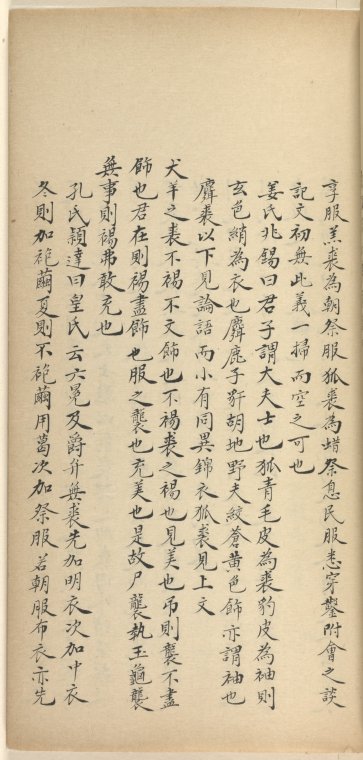 享服羔裘為朝祭服狐裘為蜡祭息民服悉穿鑿附會之談
記文初無此義一掃而空之可也
姜氏兆錫曰君子謂大夫士也狐青毛皮為裘豹皮為袖則
玄色綃為衣也麛鹿子豻胡地野犬絞蒼黃色飾亦謂袖也
麛裘以下見論語而小有同異錦衣狐裘見上文
犬羊之裘不裼不文飾也不裼裘之裼也見美也弔則襲不盡
飾也君在則裼盡飾也服之襲也充美也是故尸襲執玉龜襲
無事則裼弗敢充也
孔氏穎達曰皇氏云六冕及爵弁無裘先加明衣次加中衣
冬則加袍繭夏則不袍繭用葛次加祭服若朝服布衣亦先